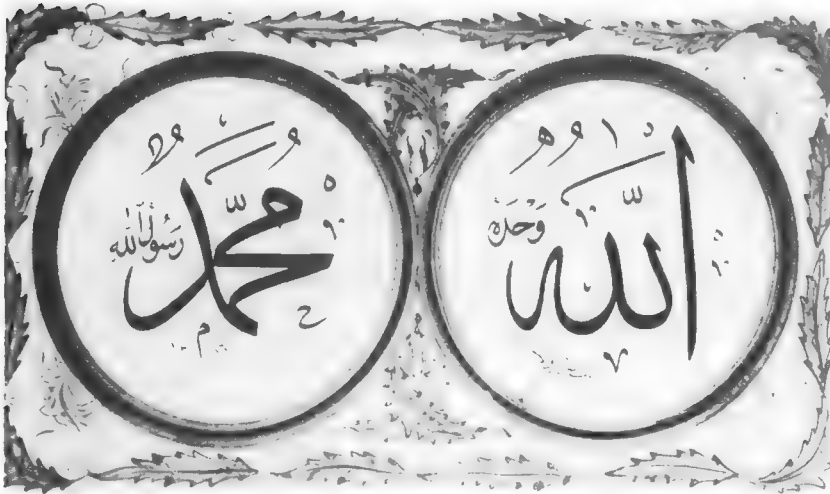 الله
وَحْدَهُ
مُحَمَّد
رَسُولُ ٱللَّه